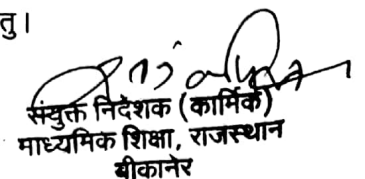 तु।
संयुक्त निदेशक (कार्मिक)
माध्यमिक शिक्षा, राजस्थान
बीकानेर